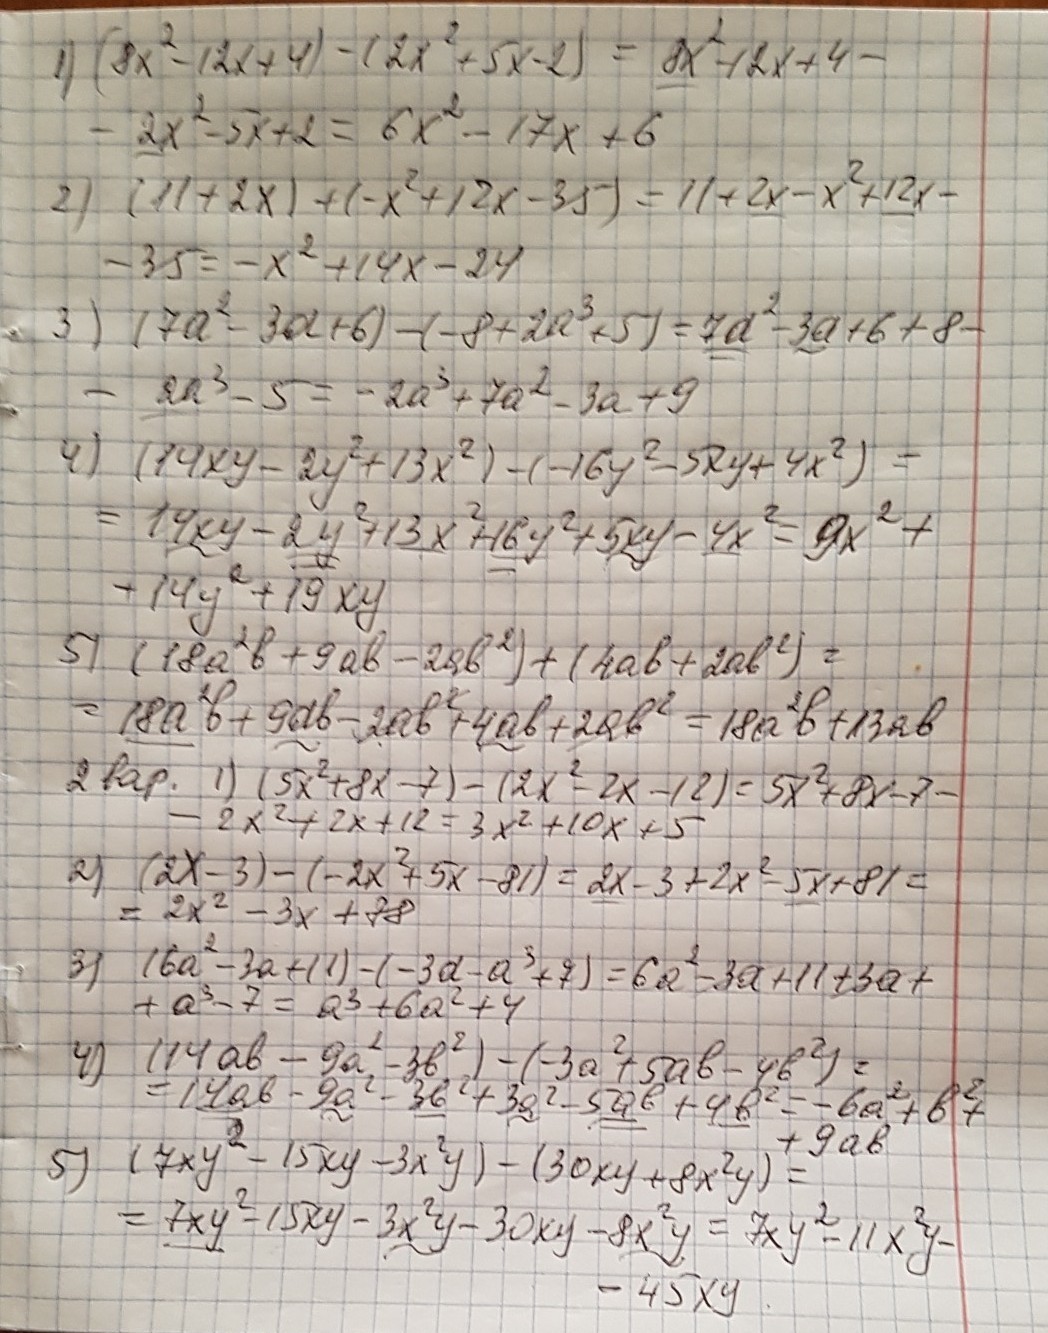 1) (8x²-12x+4)-(2x²+5x-2) = 8x²-12x+4-
-2x²-5x+2= 6x²-17x+6
2) (11+2x)+(-x²+12x-35)=11+2x-x²+12x-
-35=-x²+14x-24
3) (7a²-3a+6)-(-8+2a³+5)=7a²-3a+6+8-
- 2a³-5=-2a³+7a²-3a+9
4) (14xy-2y²+13x²)-(-16y²-5xy+4x²) =
= 14xy-2y²+13x²+16y²+5xy-4x²= 9x²+
+14y²+19xy
5) (18a²b+9ab-2ab²)+(4ab+2ab²) =
= 18a²b+9ab-2ab²+4ab+2ab² =18a²b+13ab
2 вар. 1) (5x²+8x-7)-(2x²-2x-12)=5x²+8x-7-
- 2x²+2x+12=3x²+10x+5
2) (2x-3)-(-2x²+5x-81)=2x-3+2x²-5x+81=
= 2x²-3x+78
3) (6a²-3a+11)-(-3a-a³+7)=6a²-3a+11+3a+
+a³-7= a³+6a²+4
4) (14ab-9a²-3b²)-(-3a²+5ab-4b²)=
=14ab-9a²-3b²+3a²-5ab+4b²=-6a²+b²+
+9ab
5) (7xy²-15xy-3x²y)-(30xy+8x²y)=
= 7xy²-15xy-3x²y-30xy-8x²y = 7xy²-11x²y-
-45xy.